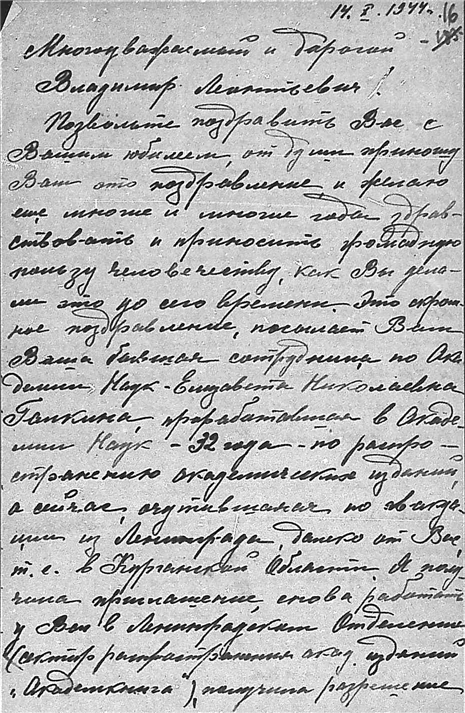 14. X. 1944г. 16
Многоуважаемый и дорогой
Владимир Леонтьевич!
Позвольте поздравить Вас с
Вашим юбилеем, от души приношу
Вам это поздравление и желаю
еще многие и многие годы здрав-
ствовать и приносить громадную
пользу человечеству, как Вы дела-
ли это до сего времени. Это скром-
ное поздравление, посылает Вам
Ваша бывшая сотрудница по Ака-
демии Наук - Елизавета Николаевна
Галкина, проработавшая в Акаде-
мии Наук - 32 года - по распро-
странению академических изданий,
а сейчас, очутившаяся по эвакуа-
ции из Ленинграда далеко от Вас,
т. е. в Курганской Области. Я полу-
чила приглашение снова работать
у Вас в Ленинградском Отделении
(сектор распространения акад. изданий
"Академкнига"), получила разрешение